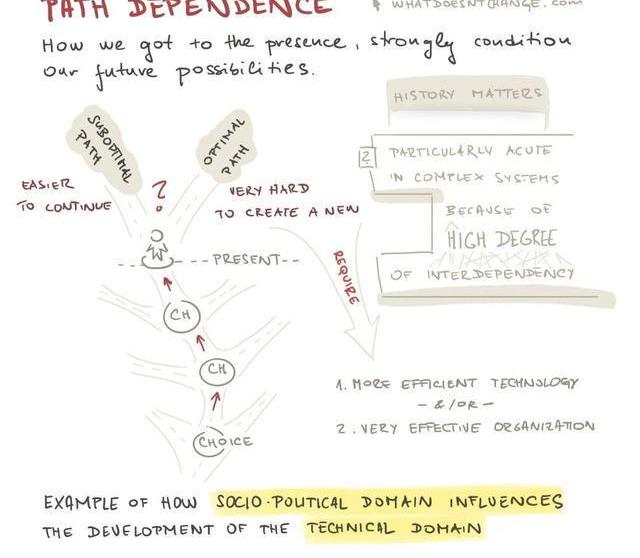 PATH DEPENDENCE
WHATDOESNTCHANGE.com
How we got to the presence, strongly condition
our future possibilities.
HISTORY MATTERS
SUBOPTIMAL
PATH
OPTIMAL
PATH
2
PARTICULARLY ACUTE
IN COMPLEX SYSTEMS
EASIER
TO CONTINUE
?
VERY HARD
TO CREATE A NEW
BECAUSE OF
HIGH DEGREE
OF INTERDEPENDENCY
PRESENT
REQUIRE
CH
CH
CHOICE
1. MORE EFFICIENT TECHNOLOGY
- &/OR -
2. VERY EFFECTIVE ORGANIZATION
EXAMPLE OF HOW SOCIO-POLITICAL DOMAIN INFLUENCES
THE DEVELOPMENT OF THE TECHNICAL DOMAIN